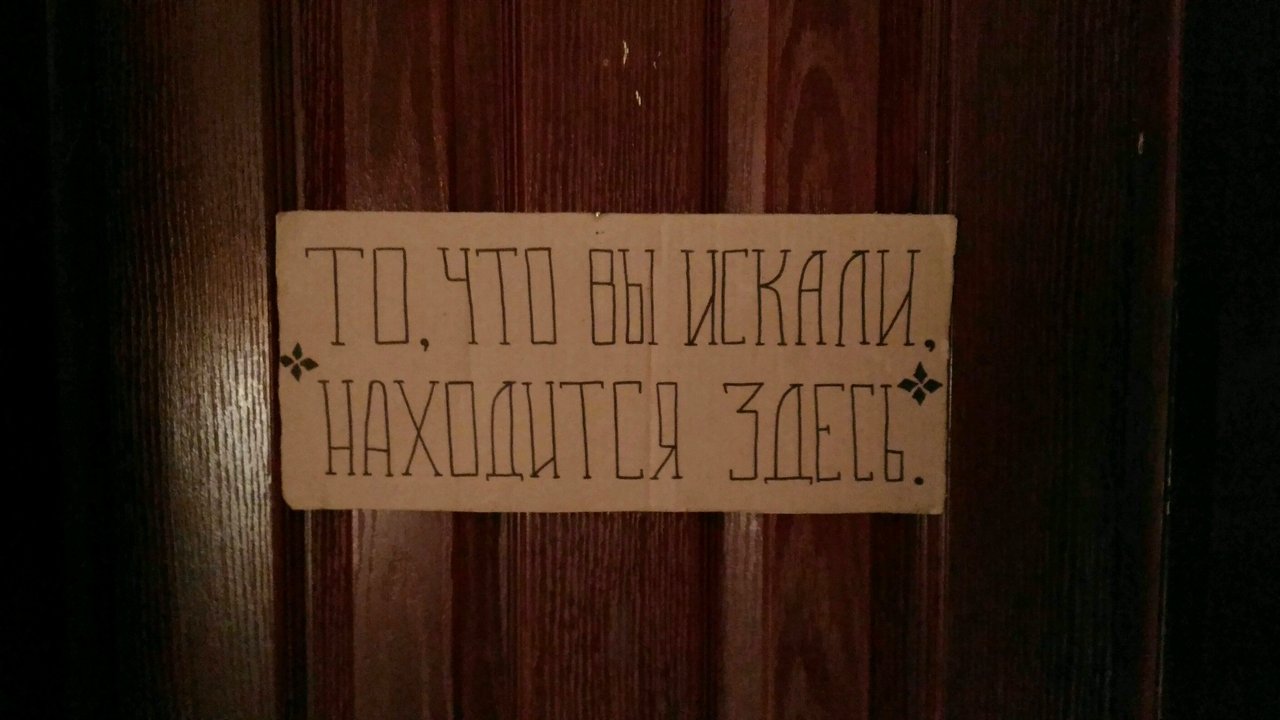 ТО, ЧТО ВЫ ИСКАЛИ,
НАХОДИТСЯ ЗДЕСЬ.